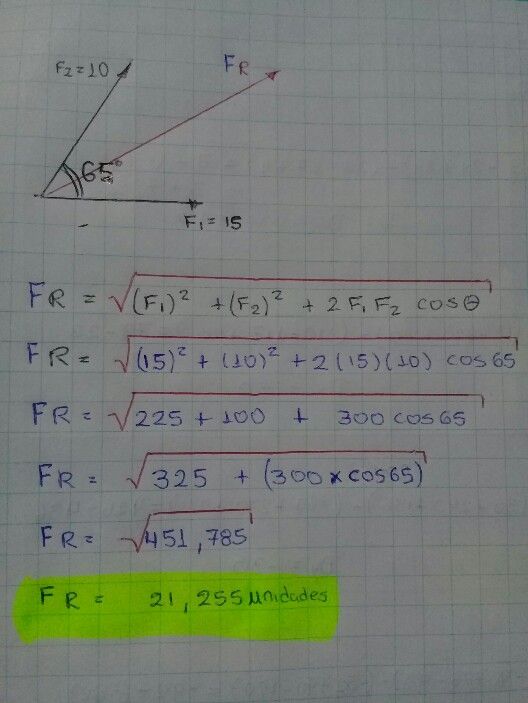 F₂=10
FR
65°
F₁=15
FR = √(F₁)² + (F₂)² + 2F₁F₂ cosθ
FR = √(15)² + (10)² + 2(15)(10) cos65
FR = √225 + 100 + 300 cos65
FR = √325 + (300×cos65)
FR = √451,785
FR = 21,255 unidades